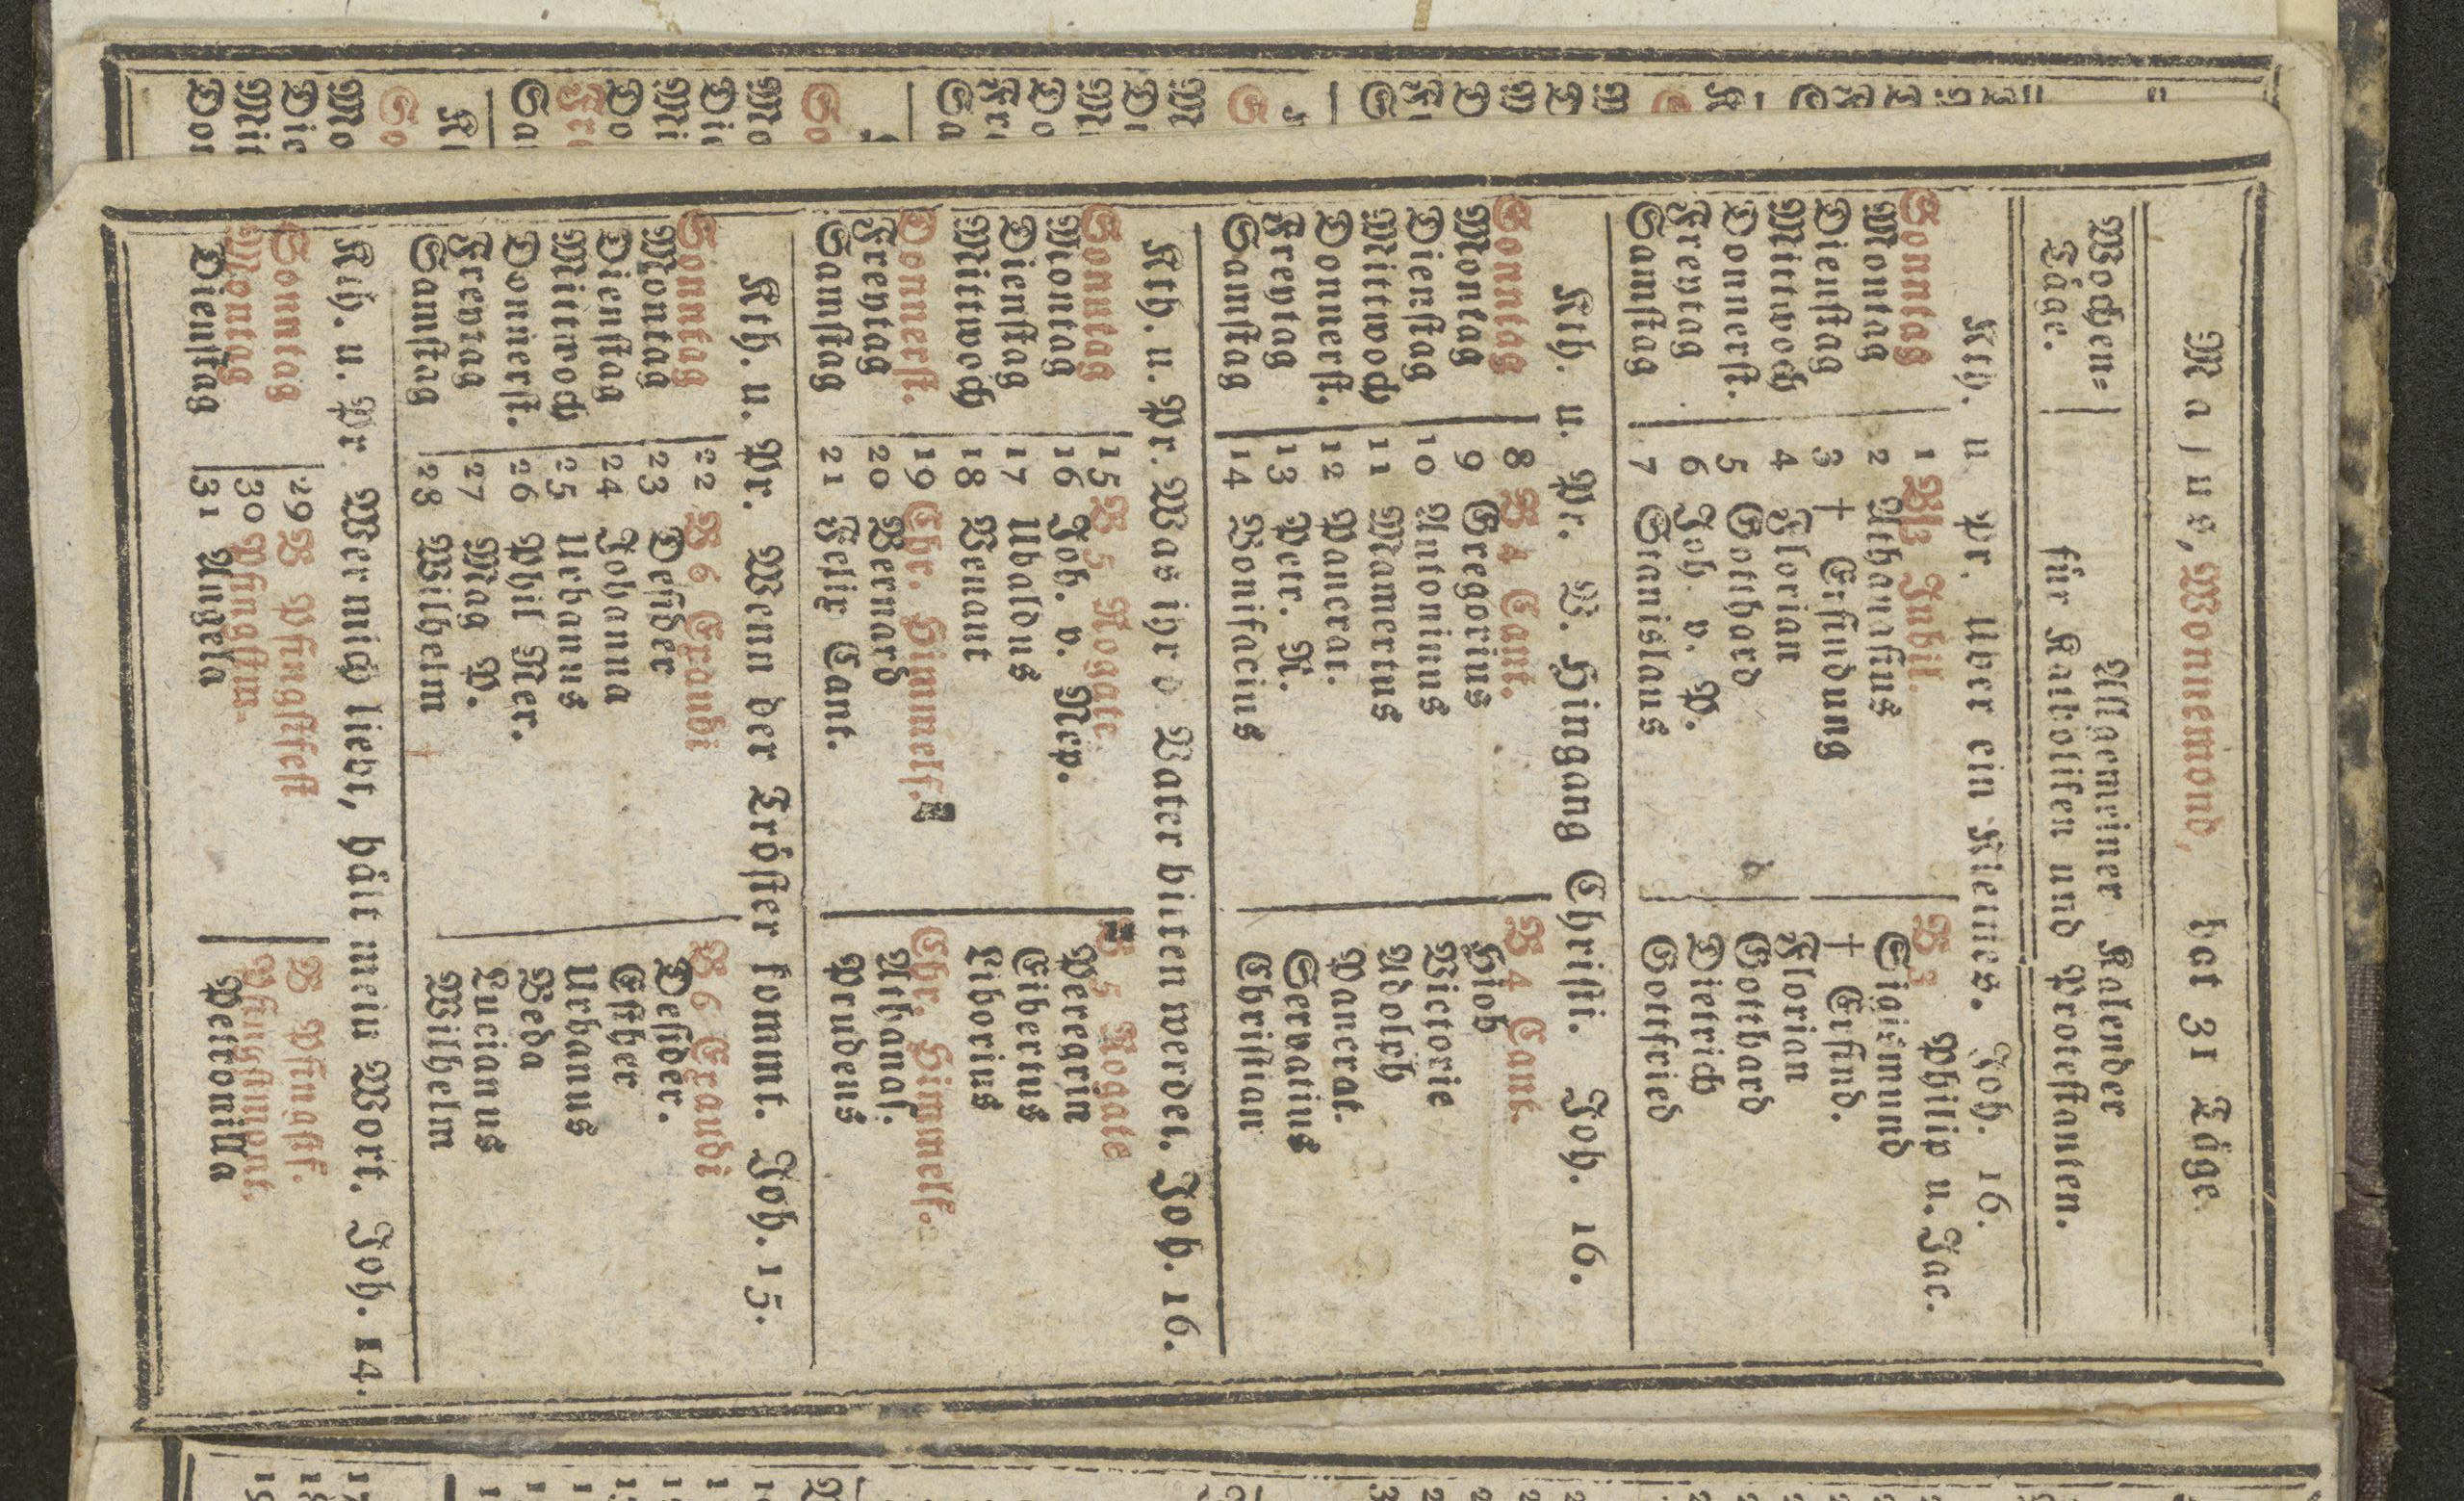 Majus, Wonnemond, hat 31 Täge.
Wochen= Täge.
Allgemeiner Kalender
für Katholiken und Protestanten.
Kth. u Pr. Uber ein Kleines. Joh. 16.
Sonntag 1 B3 Jubil. B 3 Philip u. Jac.
Montag 2 Athanasius Sigismund
Dienstag 3 † Erfindung † Erfind.
Mittwoch 4 Florian Florian
Donnerst. 5 Gotthard Gotthard
Freytag 6 Joh. v. P. Dietrich
Samstag 7 Stanislaus Gottfried
Kth. u. Pr. V. Hingang Christi. Joh. 16.
Sonntag 8 B 4 Cant. B 4 Cant.
Montag 9 Gregorius Hiob
Dienstag 10 Antoninus Victorie
Mittwoch 11 Mamertus Adolph
Donnerst. 12 Pancrat. Pancrat.
Freytag 13 Petr. R. Servatius
Samstag 14 Bonifacius Christian
Kth. u. Pr. Was ihr d Vater bitten werdet. Joh. 16.
Sonntag 15 B 5 Rogate B 5 Rogate
Montag 16 Joh. v. Nep. Peregrin
Dienstag 17 Ubaldus Eibertus
Mittwoch 18 Venant Liborius
Donnerst. 19 Chr. Himmelf. Chr. Himmelf.
Freytag 20 Bernard Athanas.
Samstag 21 Felix Cant. Prudens
Kth. u. Pr. Wenn der Tröster kommt. Joh. 15.
Sonntag 22 B 6 Exaudi B 6 Exaudi
Montag 23 Desider Desider.
Dienstag 24 Johanna Esther
Mittwoch 25 Urbanus Urbanus
Donnerst. 26 Phil Ner. Beda
Freytag 27 Mag P. Lucianus
Samstag 28 Wilhelm † Wilhelm
Kth. u. Pr Wer mich liebt, hält mein Wort. Joh. 14.
Sonntag 29 B Pfingstfest B Pfingstf.
Montag 30 Pfingstm. Pfingstmont.
Dienstag 31 Angela Petronilla